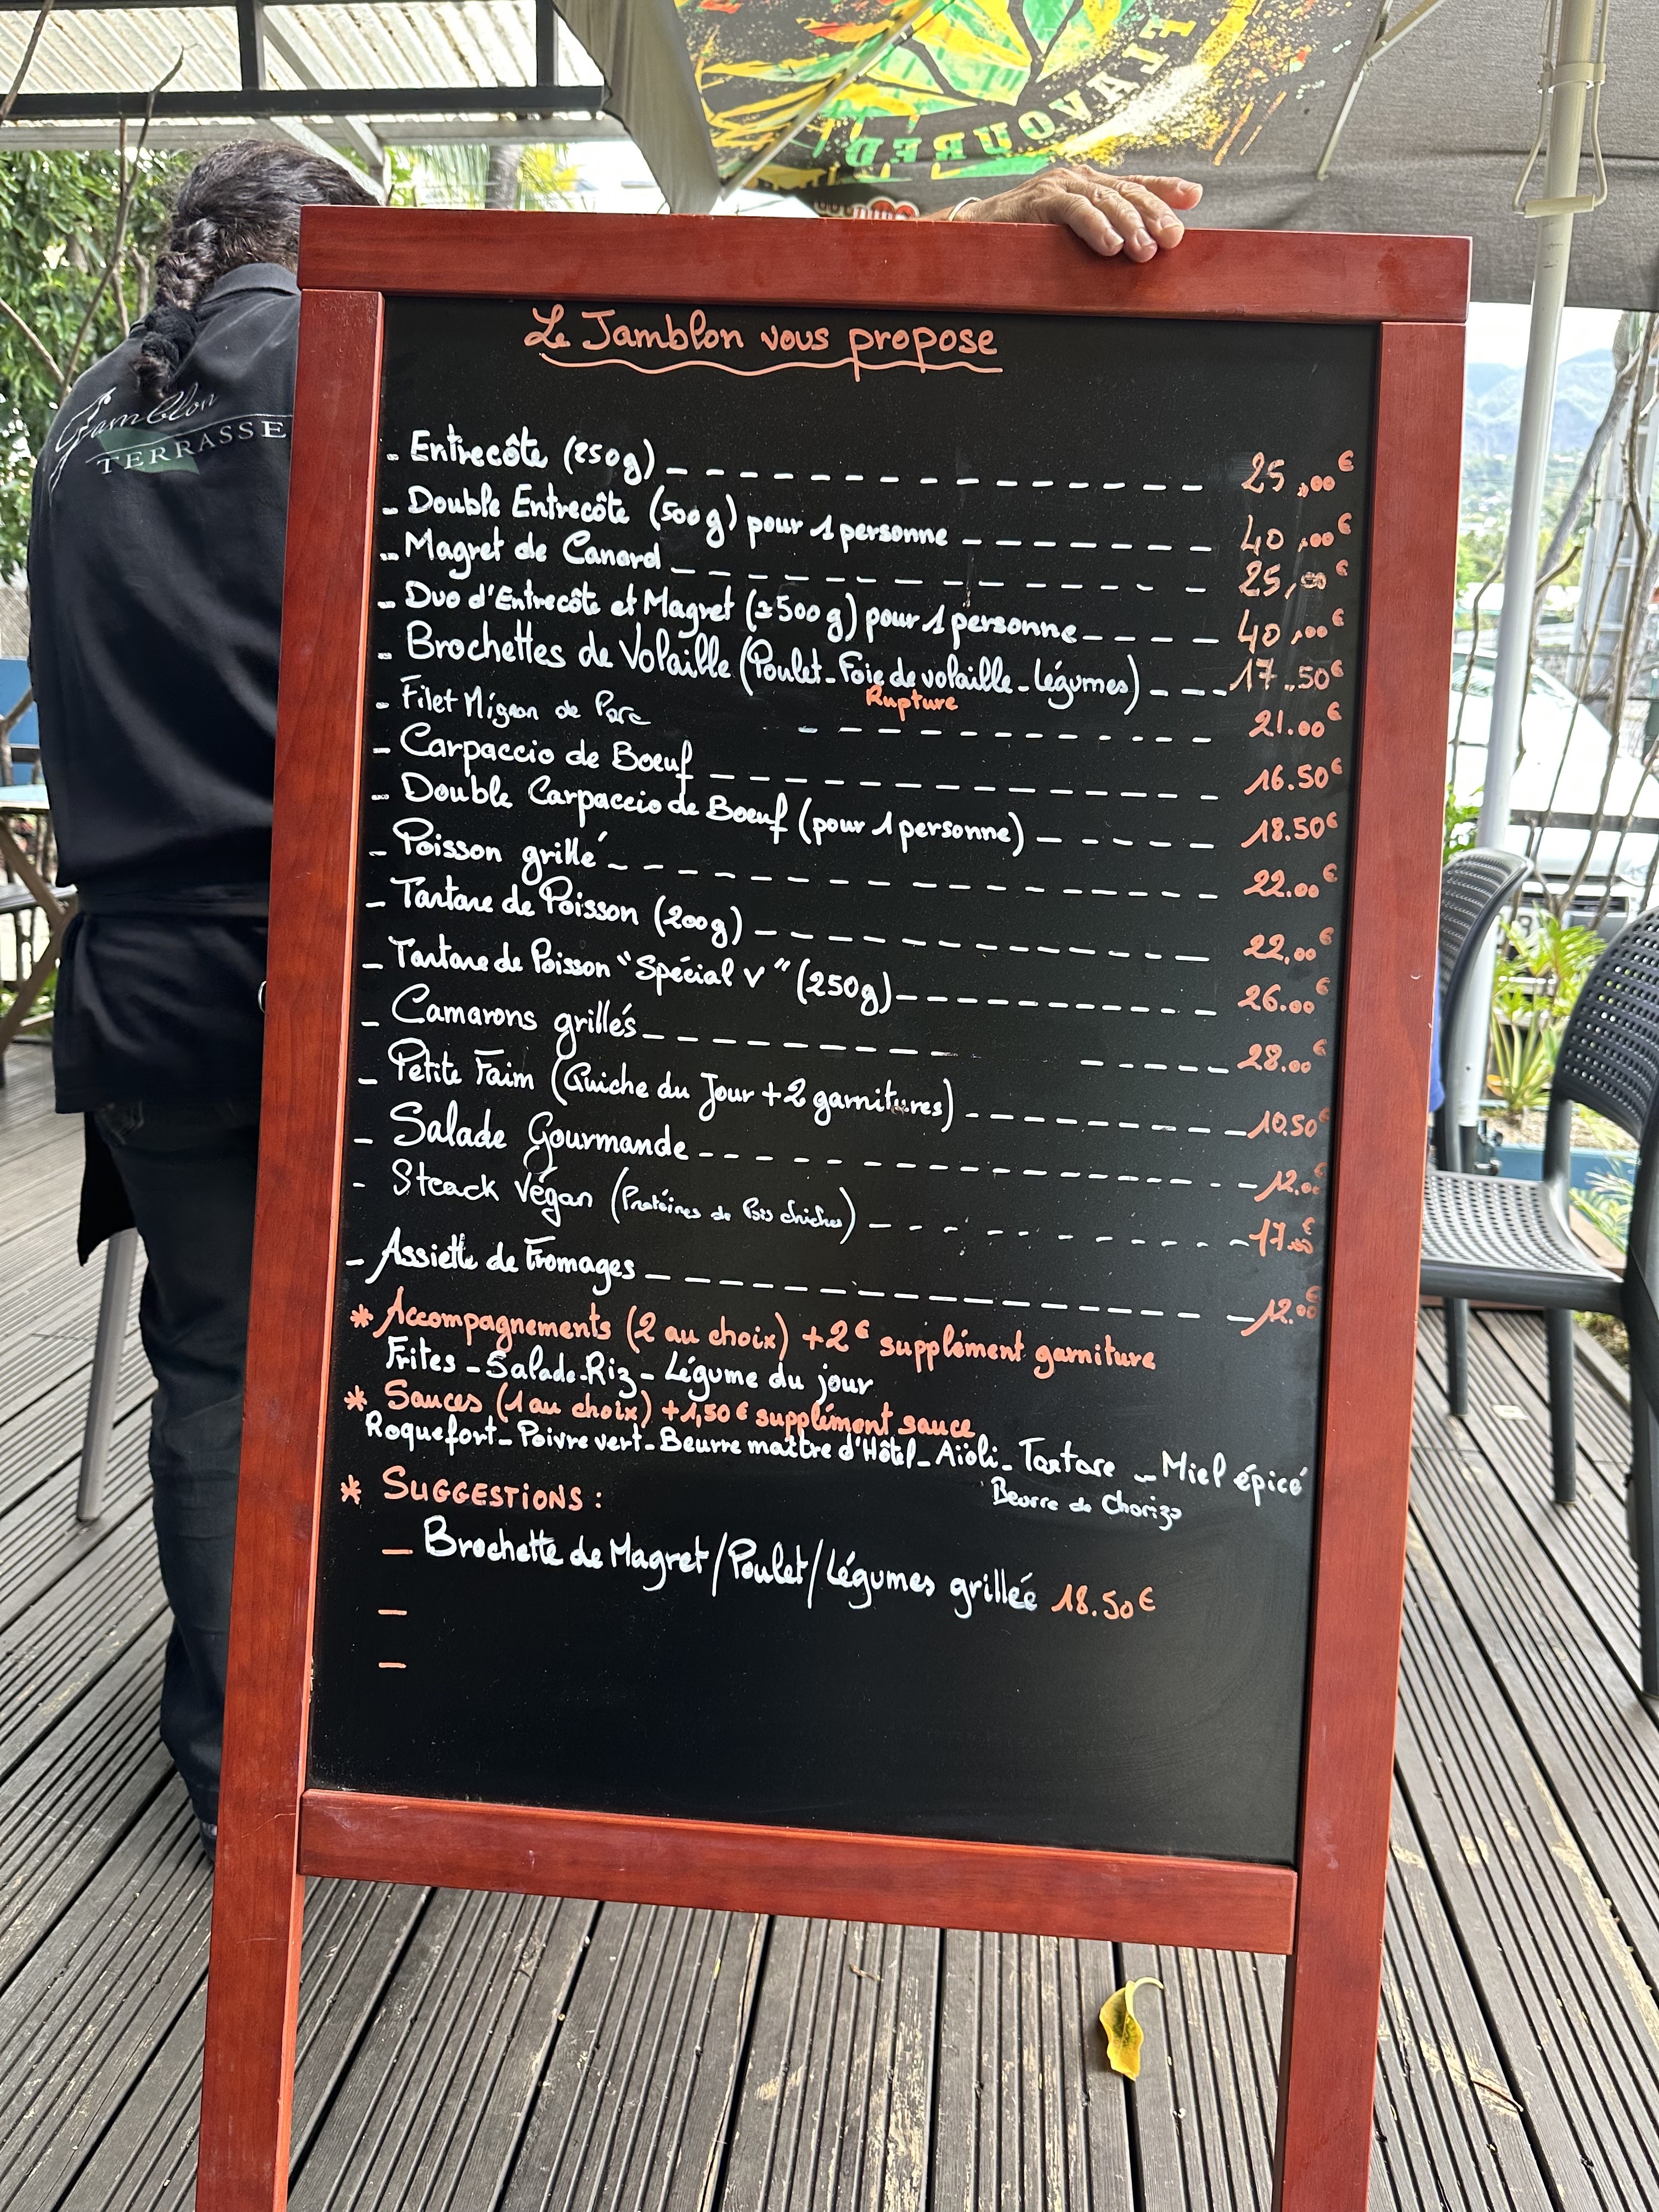 FLAVOURED
Jamblon
TERRASSE
Le Jamblon vous propose
- Entrecôte (250g) _ _ _ _ _ _ _ _ _ _ _ _ _ _ 25,00€
- Double Entrecôte (500g) pour 1 personne _ _ _ _ _ _ _ 40,00€
- Magret de Canard _ _ _ _ _ _ _ _ _ _ _ _ _ _ 25,00€
- Duo d'Entrecôte et Magret (±500g) pour 1 personne _ _ _ _ 40,00€
- Brochettes de Volaille (Poulet-Foie de volaille-Légumes) _ _ _ 17.50€
Rupture
- Filet Mignon de Porc _ _ _ _ _ _ _ _ _ _ 21.00€
- Carpaccio de Boeuf _ _ _ _ _ _ _ _ _ _ _ _ _ 16.50€
- Double Carpaccio de Boeuf (pour 1 personne) _ _ _ _ _ 18.50€
- Poisson grillé _ _ _ _ _ _ _ _ _ _ _ _ _ _ _ _ 22.00€
- Tartare de Poisson (200g) _ _ _ _ _ _ _ _ _ _ _ _ 22,00€
- Tartare de Poisson "Spécial V" (250g) _ _ _ _ _ _ _ _ _ 26.00€
- Camarons grillés _ _ _ _ _ _ _ _ _ _ _ _ _ 28.00€
- Petite Faim (Quiche du Jour + 2 garnitures) _ _ _ _ _ _ _ _ 10.50€
- Salade Gourmande _ _ _ _ _ _ _ _ _ _ _ _ _ _ _ 12.00€
- Steack Végan (Protéines de Pois chiches) _ _ _ _ _ _ _ _ _ 17.00€
- Assiette de Fromages _ _ _ _ _ _ _ _ _ _ _ _ _ _ _ 12.00€
* Accompagnements (2 au choix) +2€ supplément garniture
Frites - Salade - Riz - Légume du jour
* Sauces (1 au choix) +1,50€ supplément sauce
Roquefort - Poivre vert - Beurre maître d'Hôtel - Aïoli - Tartare - Miel épicé
Beurre de Chorizo
* SUGGESTIONS :
- Brochette de Magret/Poulet/Légumes grillée 18.50€
-
-